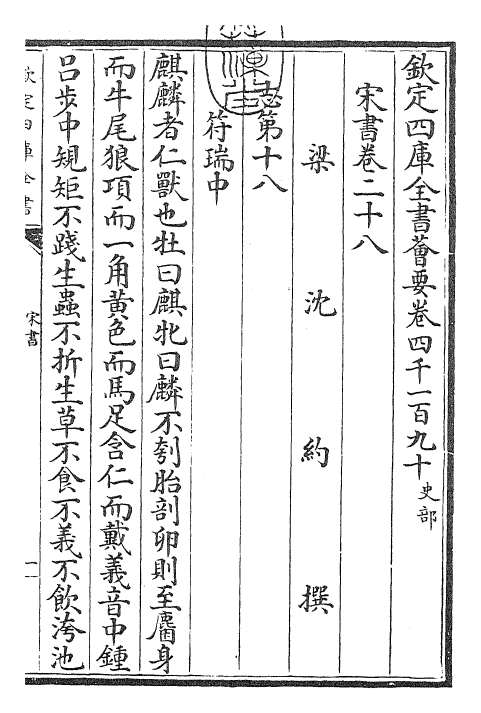 欽定四庫全書薈要卷四千一百九十 史部
宋書卷二十八
梁沈約撰
志第十八
符瑞中
麒麟者仁獸也牡曰麒牝曰麟不刳胎剖卵則至麕身
而牛尾狼項而一角黄色而馬足含仁而戴義音中鍾
吕步中規矩不踐生蟲不折生草不食不義不飲洿池
欽定四庫全書
宋書
一